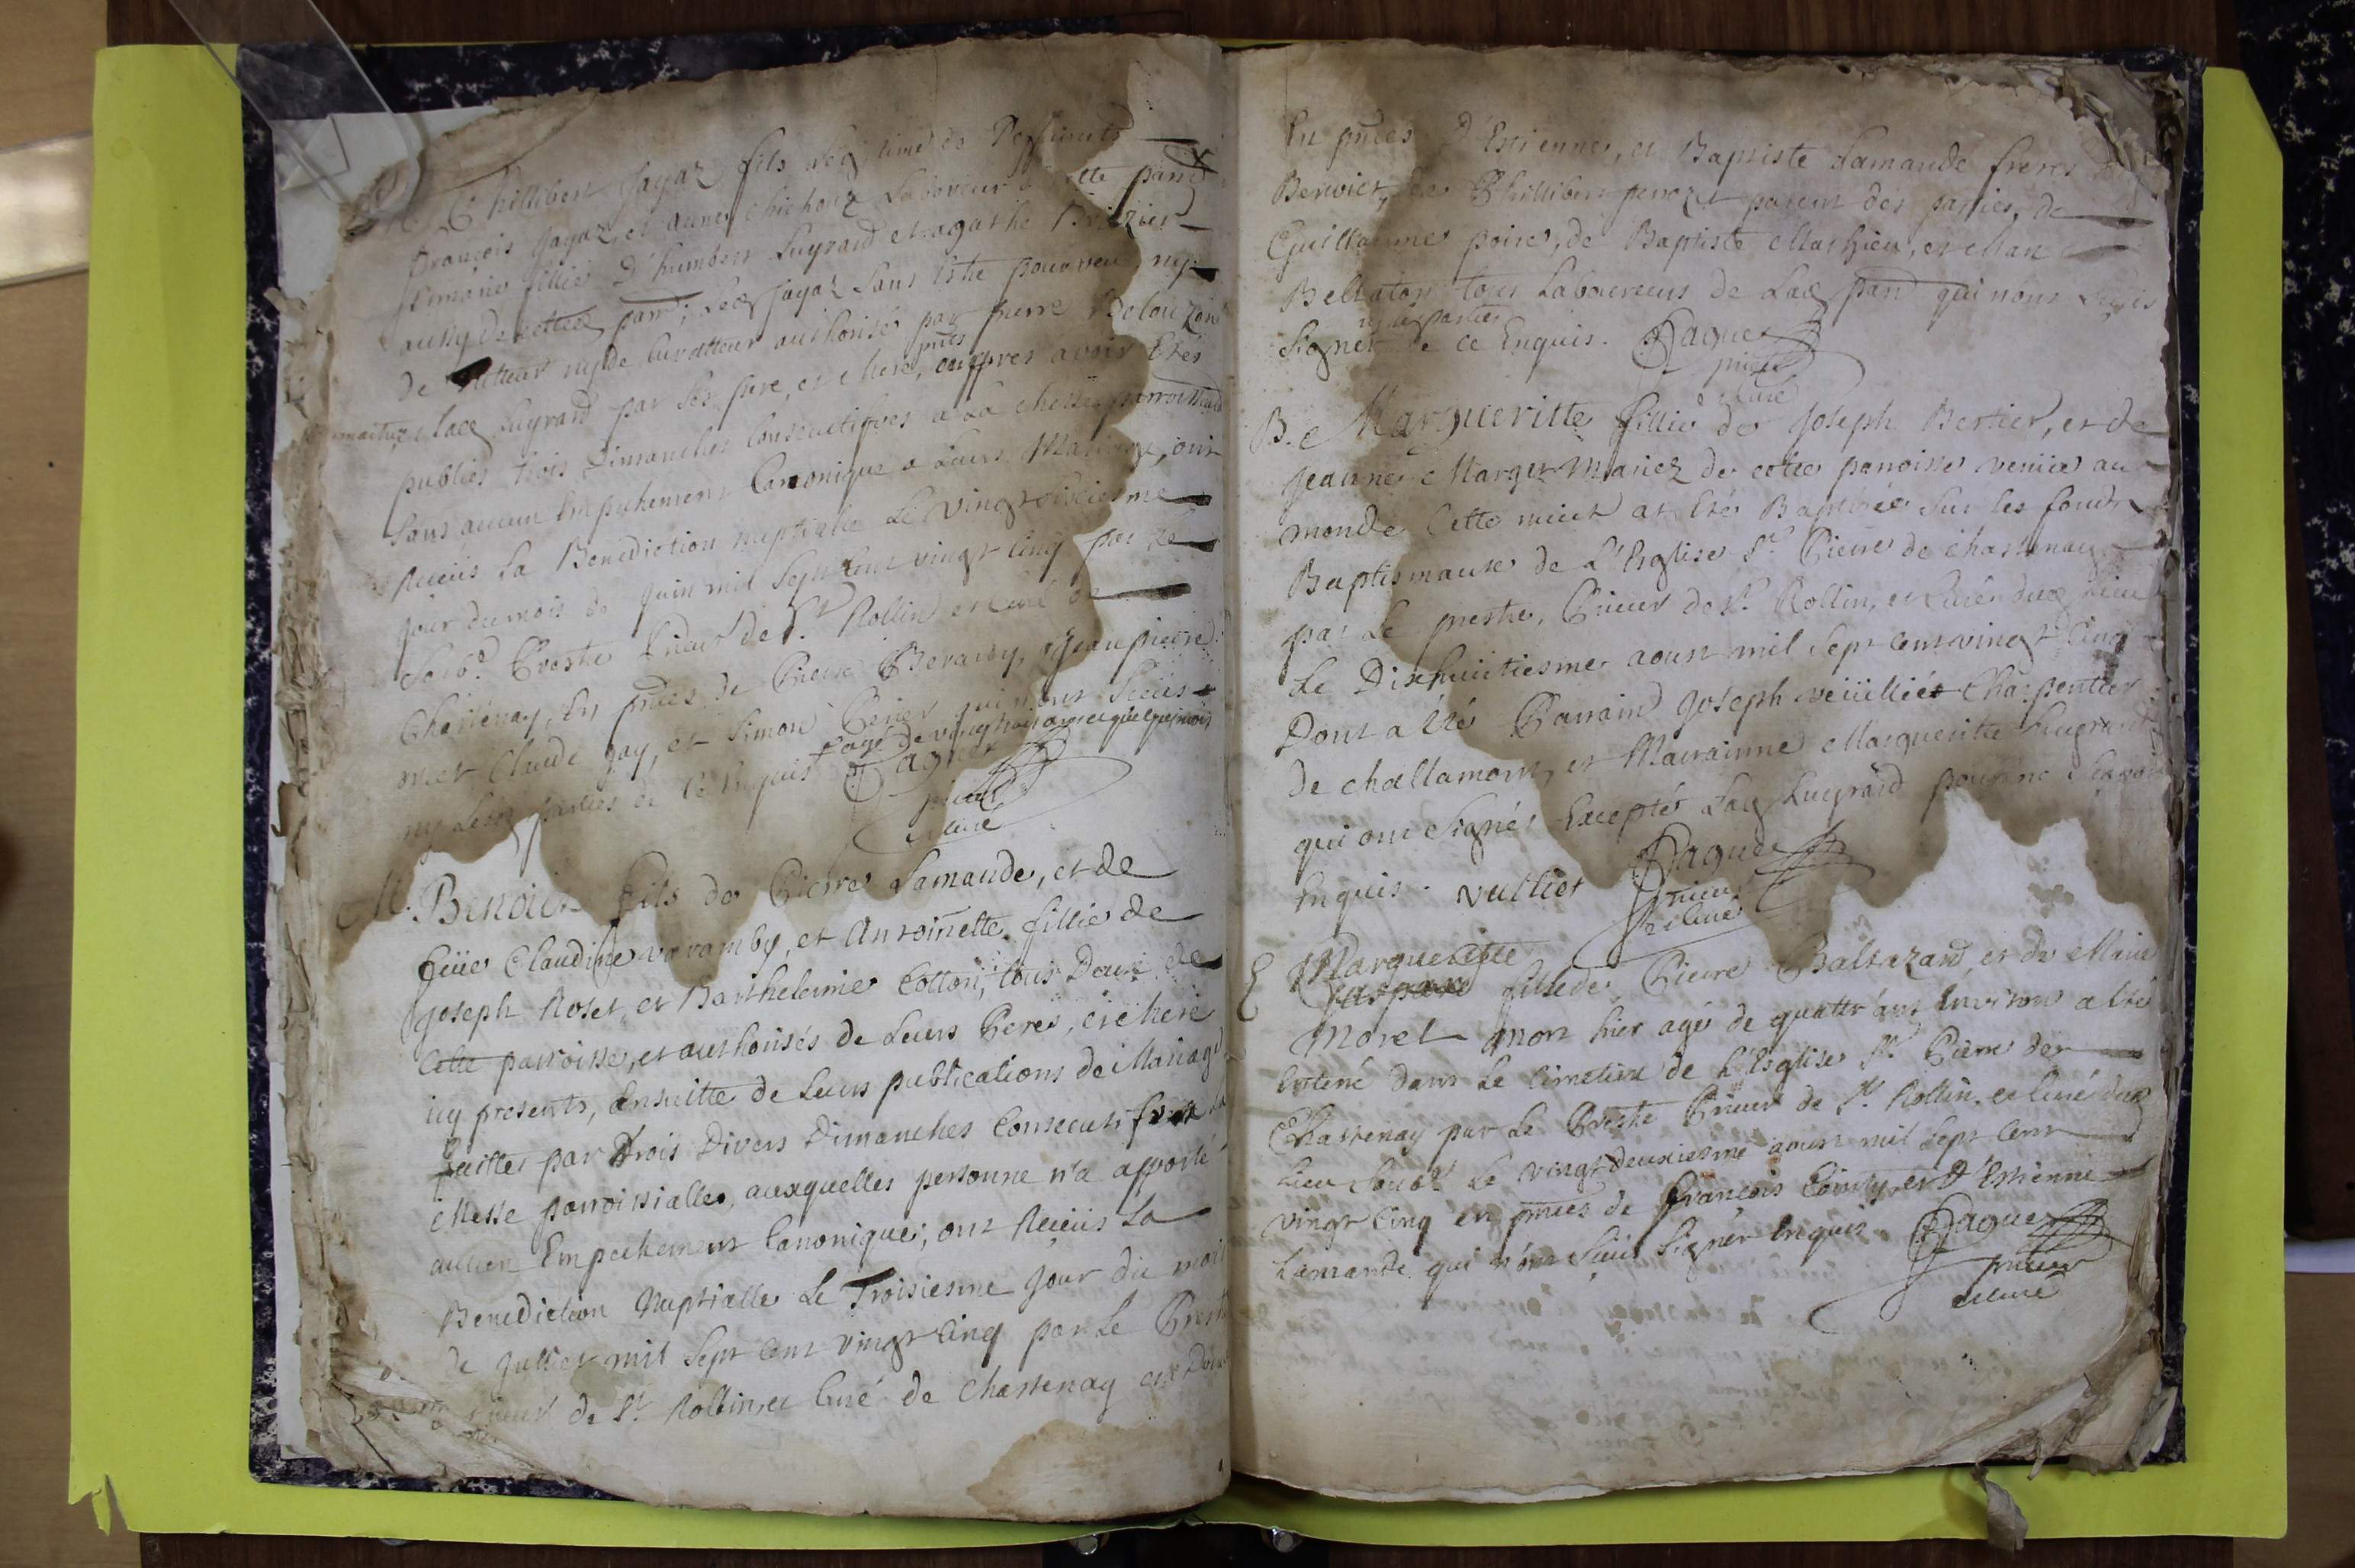 M. Phillibert Jayaz fils legitime de Deffuncts
François Jayaz, et Anne Chichoux Laboureur de cette parr.
Simone fillie d'humbert Lugrand et agathe Brizier
aussy de cette parr; Led. Jayaz sans estre pourveu ny
de Tutteur ny de Curatteur authorisé par pierre
maitre, Lad. Lugrand par ses pere, et Mere, pnts apres avoir Etés
publiés trois Dimanches Consecutifves a La Messe parroissialle
Sans aucun Empechement Canonique a Leurs Mariage, ont
Receüs La Benediction nuptialle Le vingt sixiesme
jour du mois de Juin mil Sept Cent vingt Cinq par Le
Soub.d Prestre Prieur de S.t Rollin et Curé de
Chastenay, En pnces de Pierre Berardy, Jean pierre
Claude Jay, et Simon qui n'ont Sceüs
ny Lesd. parties de Ce Enquis + agé de vingt huit ans et quelques mois
Pagnet
prieur
et Curé
M. Benoit fils de Pierre Lamande, et de
füe Claudine varamby, et Antoinette fillie de
Joseph Roset, et Barthelemie Cotton, tous Deux de
Cette parroisse, et authorisés de Leurs Peres, et Mere
icy presents, Ensuitte de Leurs publications de Mariage
faittes par Trois Divers Dimanches Consecutifs
Messe parroissialles, auxquelles personne n'a apporté
aucun Empechement Canonique; ont Receüs La
Benediction Nuptialle Le Troisiesme Jour du mois
de Jullet mil Sept Cent vingt Cinq par Le Prestre
prieur de S.t Rollin, et Curé de Chastenay
En pnces d'Estienne, et Baptiste Lamande freres
Benoict, de Phillibert perrozet parent des parties, de
Guillaume poire, de Baptiste Mathieu, et Marc
Bellaton tous Laboureurs de Lad. parr. qui n'ont Sceüs
ny les parties
Signer de ce Enquis. Pagnet
prieur
et Curé
B. Margueritte fillie de Joseph Bertier, et de
Jeanne Marget Mariez de cette parroisse venüe au
monde Cette nuict at Eté Baptisée Sur les fonds
Baptismaux de L'Eglise S.t Pierre de Chastenay
par Le prestre, Prieur de S.t Rollin, et Curé dud. Lieu
Le Dixhuitiesme aoust mil Sept Cent vingt Cinq
Dont a Eté Parrain Joseph Charpentier
de Challamont, et Marainne Margueritte Lugrand
qui ont Signés Exceptés Lad. Lugrand pour ne Scavoir
Enquis. vulliet Pagnet
prieur
et Curé
E Margueritte
fille de Pierre Baltazard, et de Marie
Morel mort hier agée de quattr' ans Environ a Eté
Enterré dans Le Cimetiere de L'Eglise S.t Pierre de
Chastenay par Le Prestre Prieur de S.t Rollin, et Curé dud.
Lieu Soub.né Le vingt deuxiesme aoust mil Sept Cent
vingt Cinq en pnces de François et d'Estienne
Lamande qui n'ont Sceüs Signer Enquis. Pagnet
prieur
et Curé